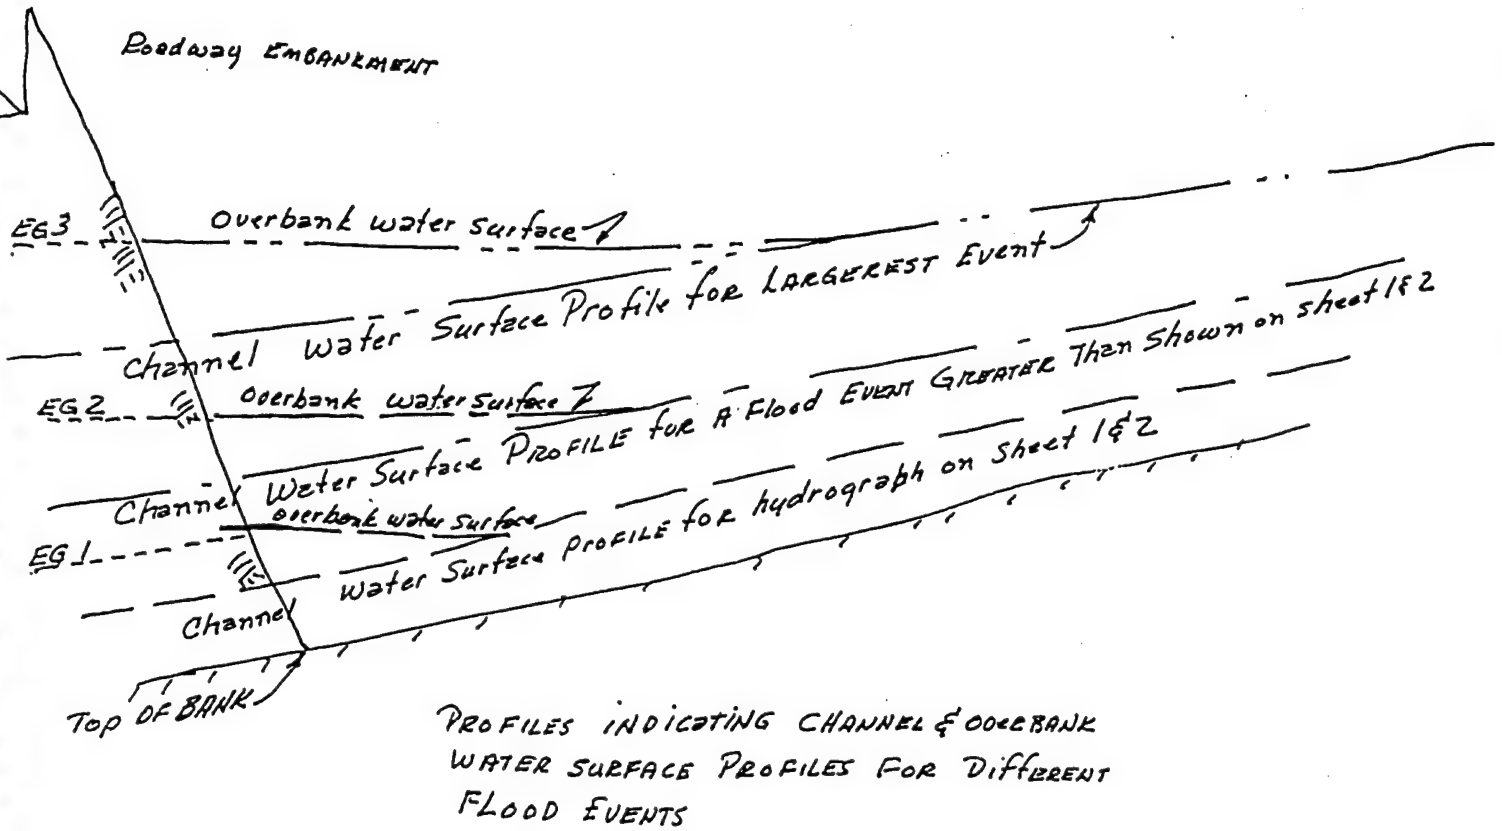 Roadway EMBANKMENT
EG3
Overbank water surface
Channel Water Surface Profile for LARGEREST Event
EG2
Overbank water surface
Channel Water Surface PROFILE for A Flood EVENT GREATER Than Shown on sheet 1&2
overbank water surface
EG1
Channel Water Surface Profile for hydrograph on sheet 1&2
Top OF BANK
PROFILES iNDicATiNG CHANNEL & OVERBANK
WATER SURFACE PROFILES FOR DiffERENT
FLOOD EVENTS